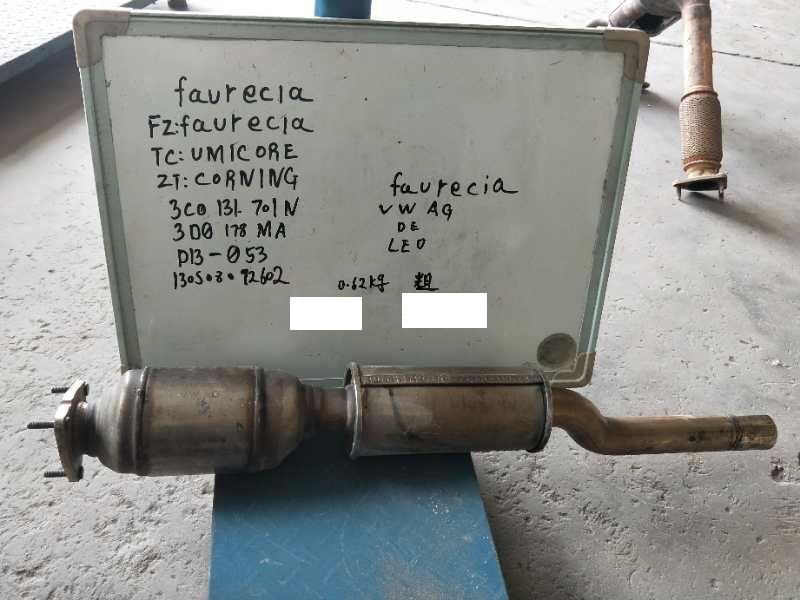 faurecia
FZ:faurecia
TC:UMICORE
ZT:CORNING
3C0 131 701N
3D0 178 MA
D13-053
130503092602
faurecia
VW AG
DE
LEO
0.62kg 粗